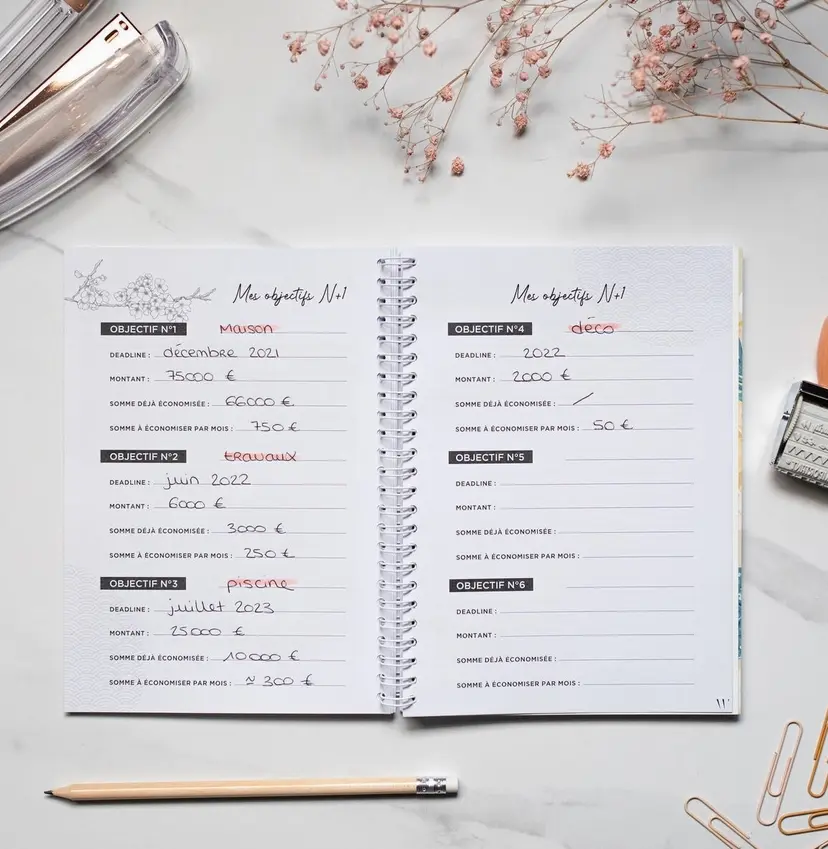 Mes objectifs N+1
OBJECTIF N°1 Maison
DEADLINE : décembre 2021
MONTANT : 75000 €
SOMME DÉJÀ ÉCONOMISÉE : 66000 €
SOMME À ÉCONOMISER PAR MOIS : 750 €
OBJECTIF N°2 travaux
DEADLINE : juin 2022
MONTANT : 6000 €
SOMME DÉJÀ ÉCONOMISÉE : 3000 €
SOMME À ÉCONOMISER PAR MOIS : 250 €
OBJECTIF N°3 piscine
DEADLINE : juillet 2023
MONTANT : 25000 €
SOMME DÉJÀ ÉCONOMISÉE : 10000 €
SOMME À ÉCONOMISER PAR MOIS : ≈ 300 €
Mes objectifs N+1
OBJECTIF N°4 déco
DEADLINE : 2022
MONTANT : 2000 €
SOMME DÉJÀ ÉCONOMISÉE : /
SOMME À ÉCONOMISER PAR MOIS : 50 €
OBJECTIF N°5
DEADLINE :
MONTANT :
SOMME DÉJÀ ÉCONOMISÉE :
SOMME À ÉCONOMISER PAR MOIS :
OBJECTIF N°6
DEADLINE :
MONTANT :
SOMME DÉJÀ ÉCONOMISÉE :
SOMME À ÉCONOMISER PAR MOIS :